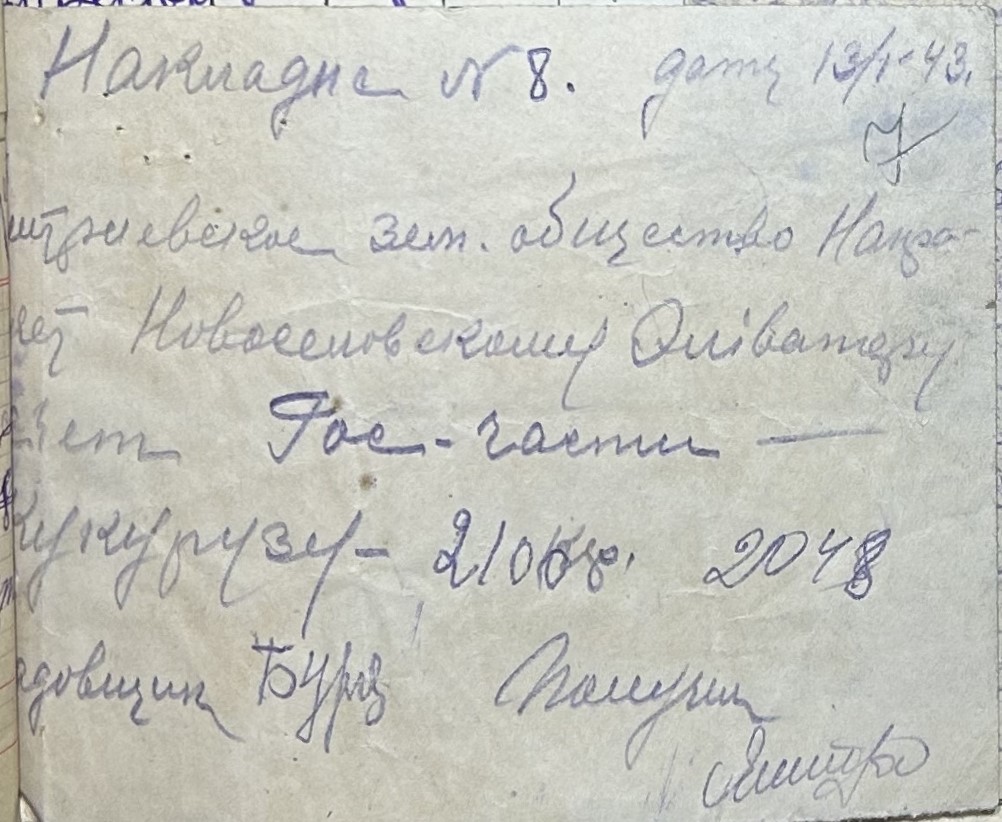 Накладна N 8. дата 13/I-43.
7
итриевское зем. общество Напра-
яет Новоселовскому Элiватору
Зет Гос-части —
кукурузу - 210 кгр. 2048
адовщик Бурд Получил
Дмитро